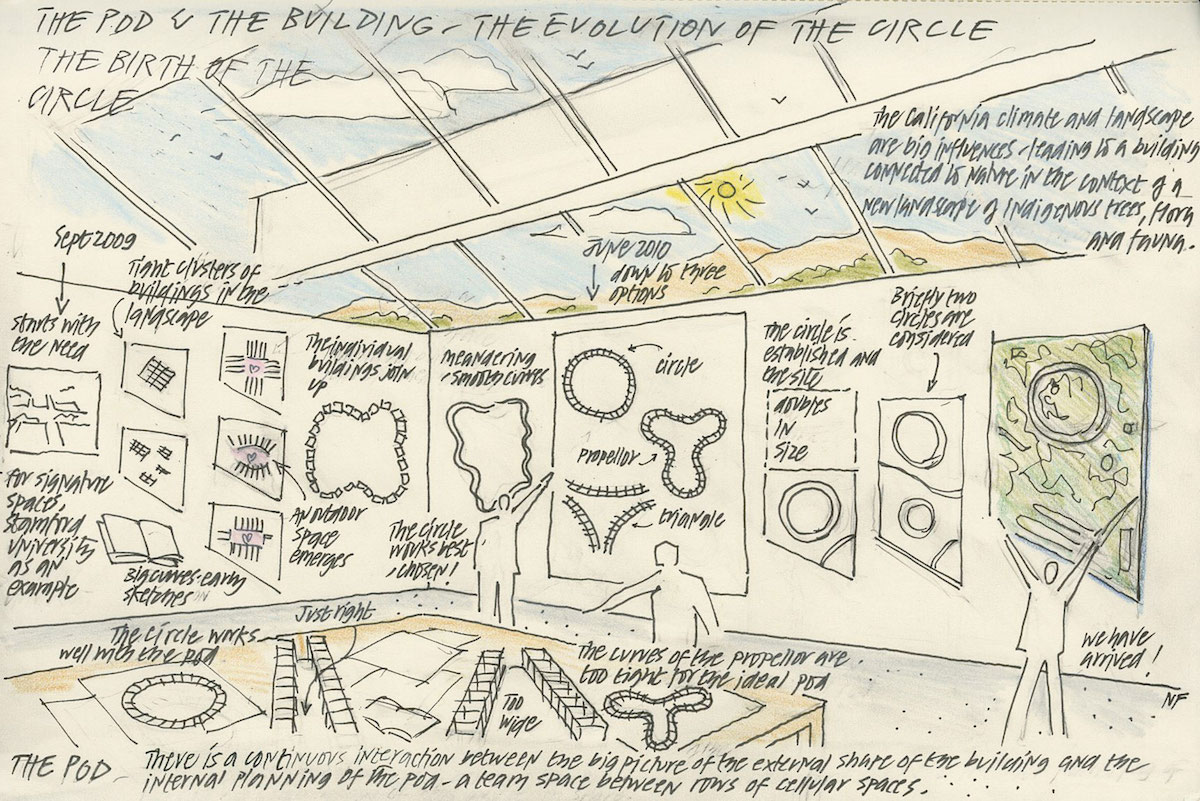 THE POD & THE BUILDING - THE EVOLUTION OF THE CIRCLE
THE BIRTH OF THE
CIRCLE
The California climate and landscape
are big influences - leading to a building
connected to nature in the context of a
new landscape of indigenous trees, flora
and fauna.
Sept 2009
starts with
the need
for signature
spaces,
Stamford
University
as an
example
Tight clusters of
buildings in the
landscape
Big curves - early
sketches
The individual
buildings join
up
An outdoor
space
emerges
meandering
- smooth curves
The circle
works best
, chosen!
June 2010
down to three
options
circle
propellor
triangle
The circle is
established and
the site
doubles
IN
size
Briefly two
circles are
considered
we have
arrived!
NF
The circle works
well with the pod
Just right
Too
wide
The curves of the propellor are
too tight for the ideal pod
THE POD - There is a continuous interaction between the big picture of the external share of the building and the
internal planning of the pod - a team space between rows of cellular spaces.